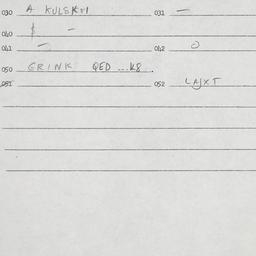 030 A KULSKM 031 —
040 $ —
041 — 042 O
050 GRINK QED ... K8 ...
051 052 LAJXT